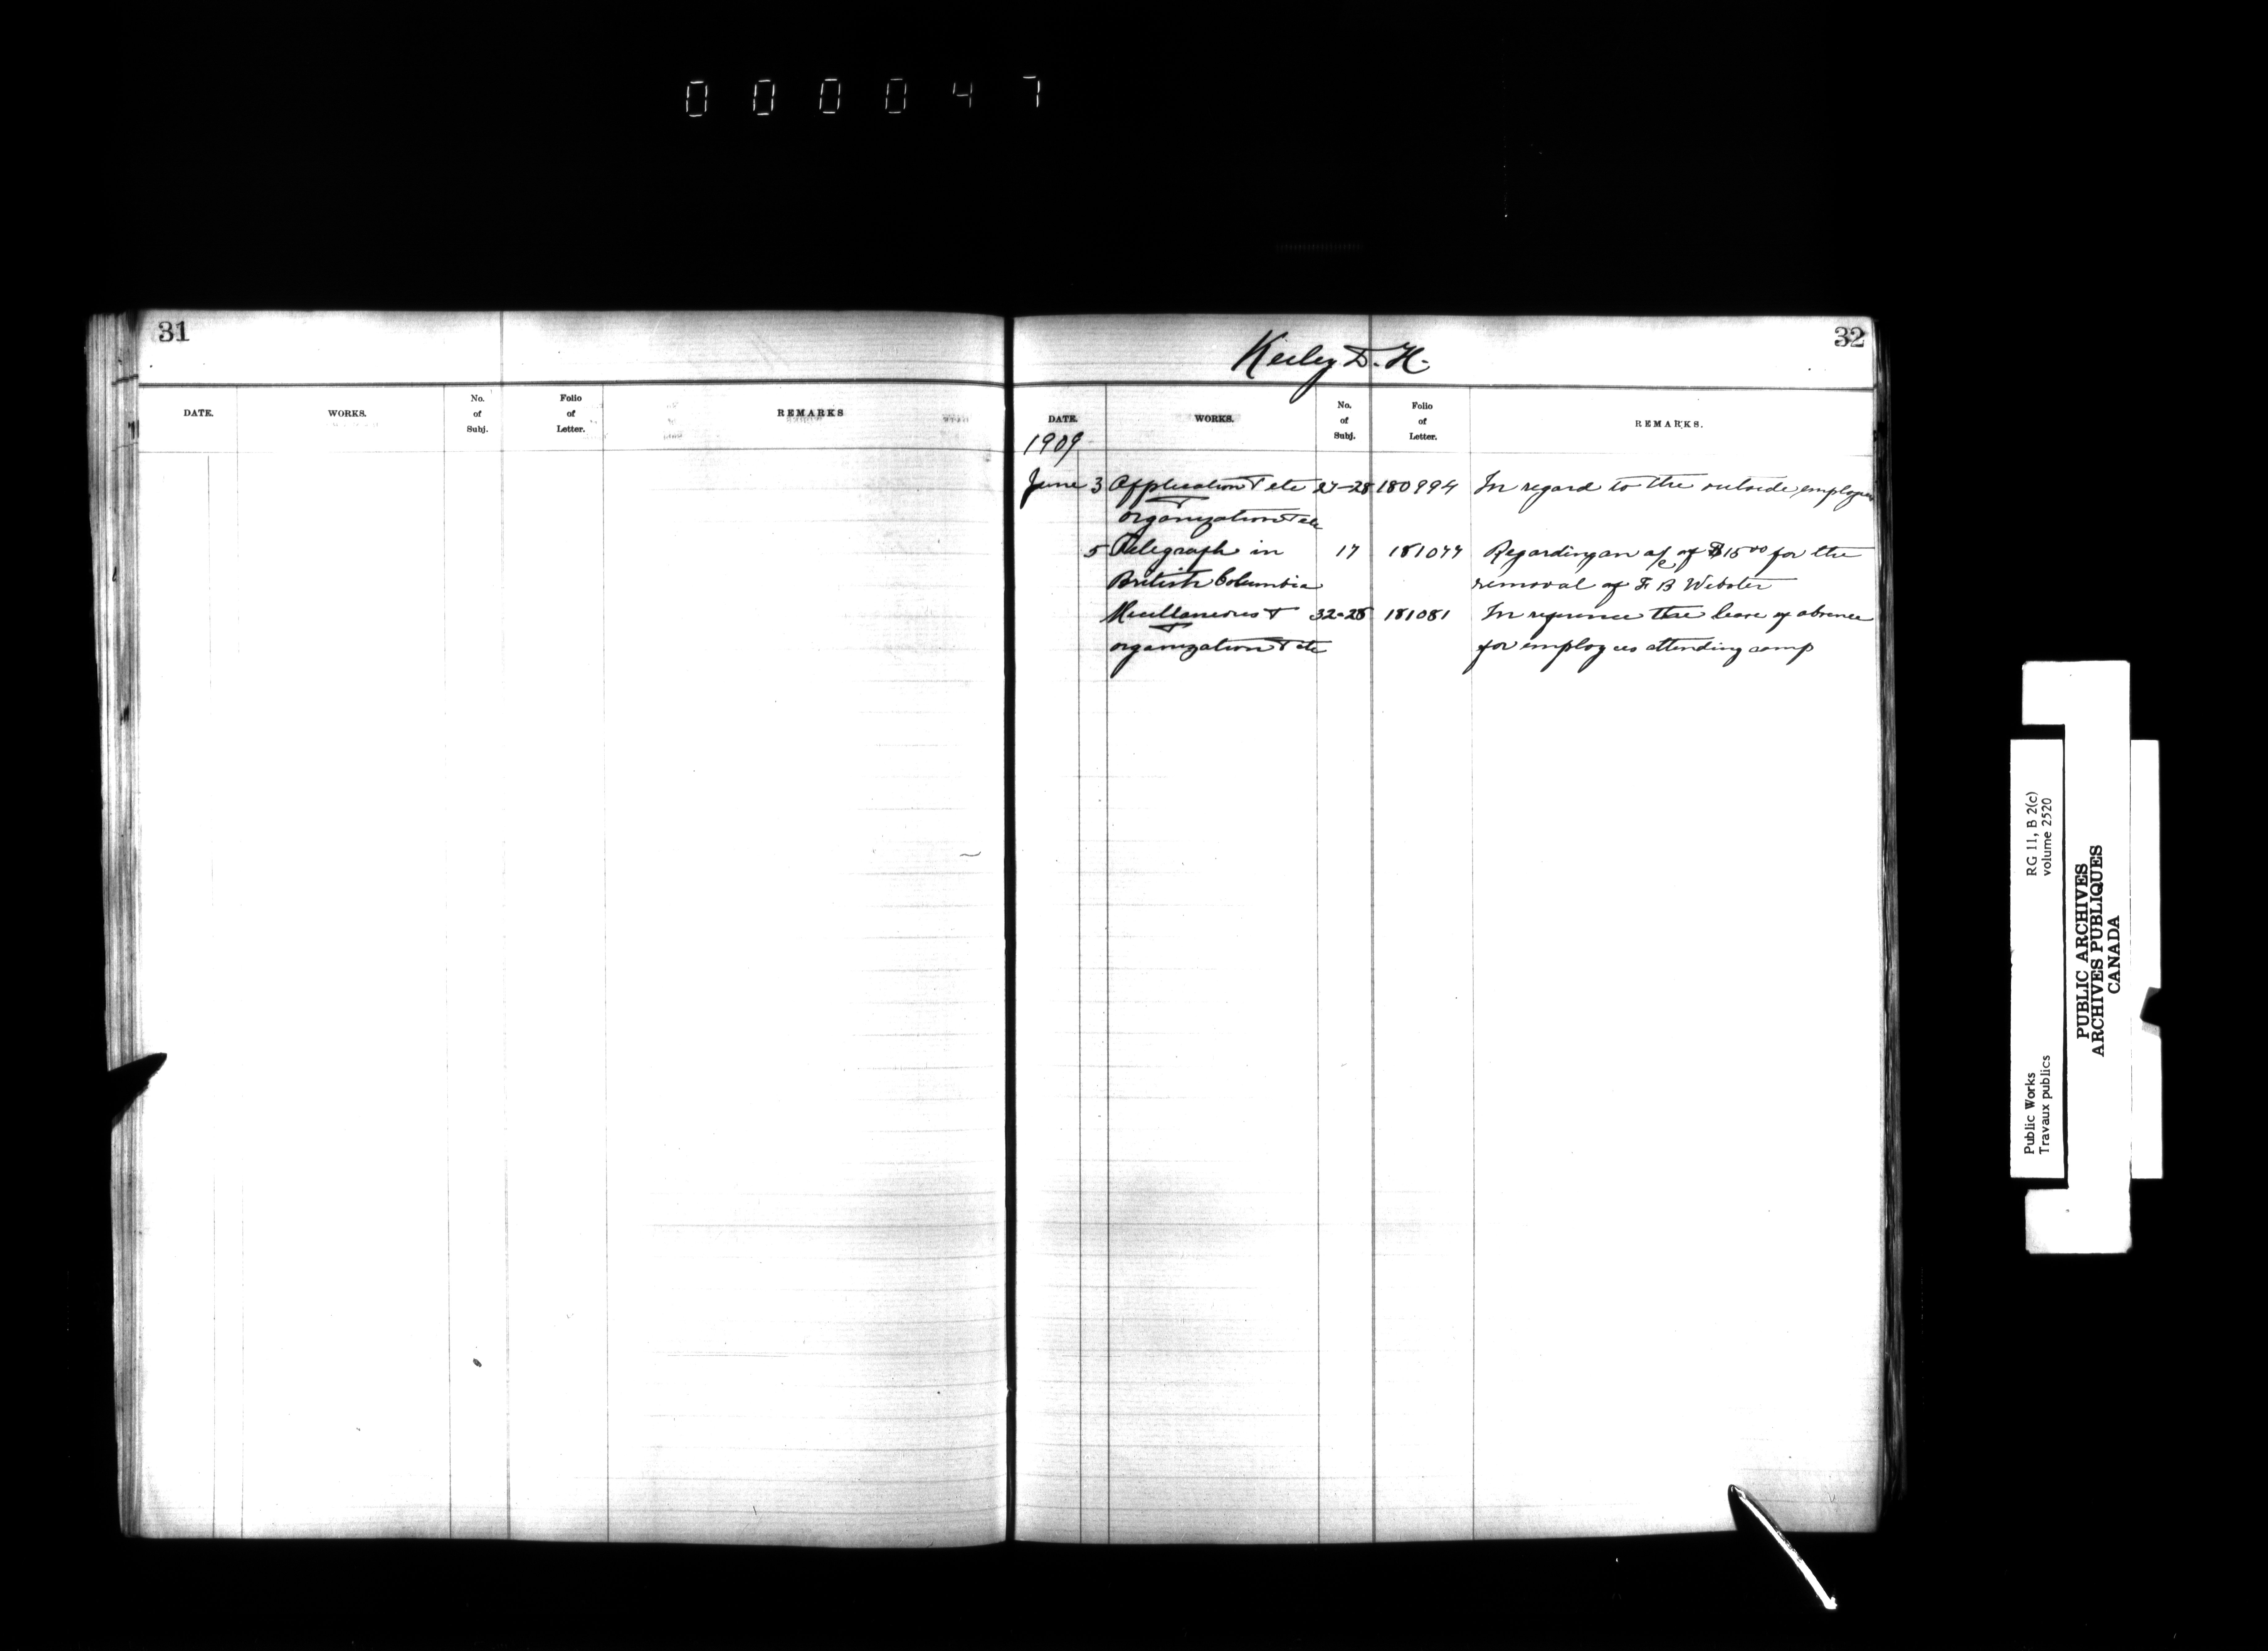 000047
31
DATE. WORKS. No. of Subj. Folio of Letter. REMARKS
32
Keeley D. H.
DATE. WORKS. No. of Subj. Folio of Letter. REMARKS.
1909
June 3 Application T etc 27-28 180994 In regard to the outside employees
organization T etc
5 Telegraph in 17 181077 Regarding an a/c of $15 00 for the
British Columbia removal of F B Webster
Miscellaneous T 32-28 181081 In reference the leave of absence
organization T etc for employees attending camp
RG 11, B 2(c)
volume 2520
Public Works
Travaux publics
PUBLIC ARCHIVES
ARCHIVES PUBLIQUES
CANADA